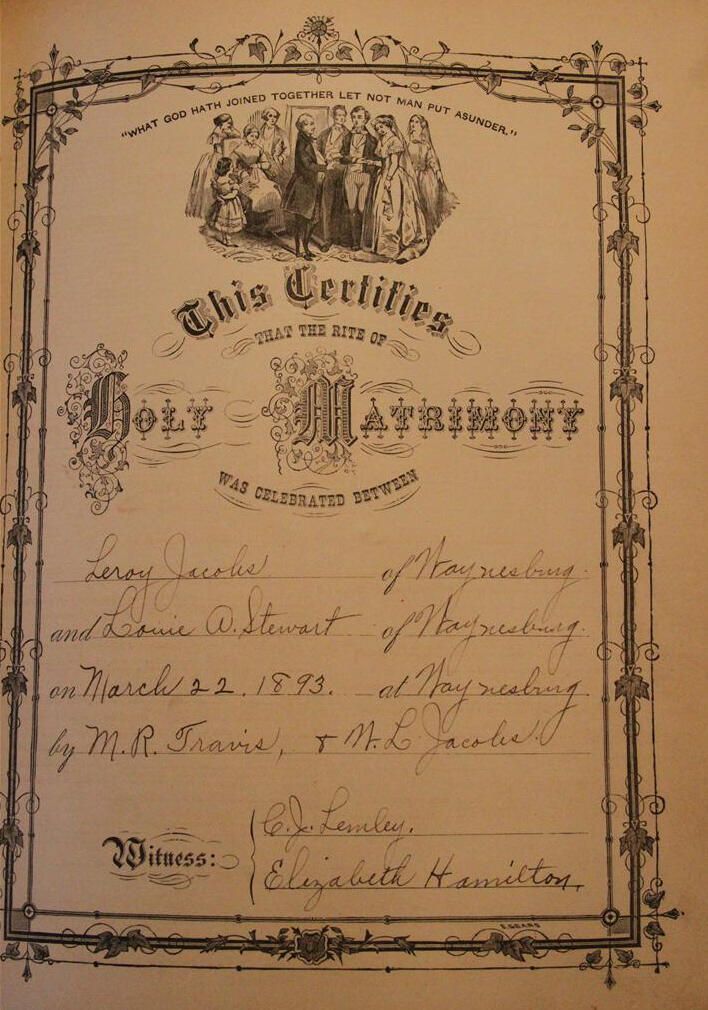 "WHAT GOD HATH JOINED TOGETHER LET NOT MAN PUT ASUNDER."
This Certifies
THAT THE RITE OF
HOLY MATRIMONY
WAS CELEBRATED BETWEEN
Leroy Jacobs of Waynesburg.
and Louie A. Stewart of Waynesburg.
on March 22, 1893. at Waynesburg.
by M. R. Travis, & W. L. Jacobs.
Witness:
C. J. Lemley.
Elizabeth Hamilton.
E. GEANS